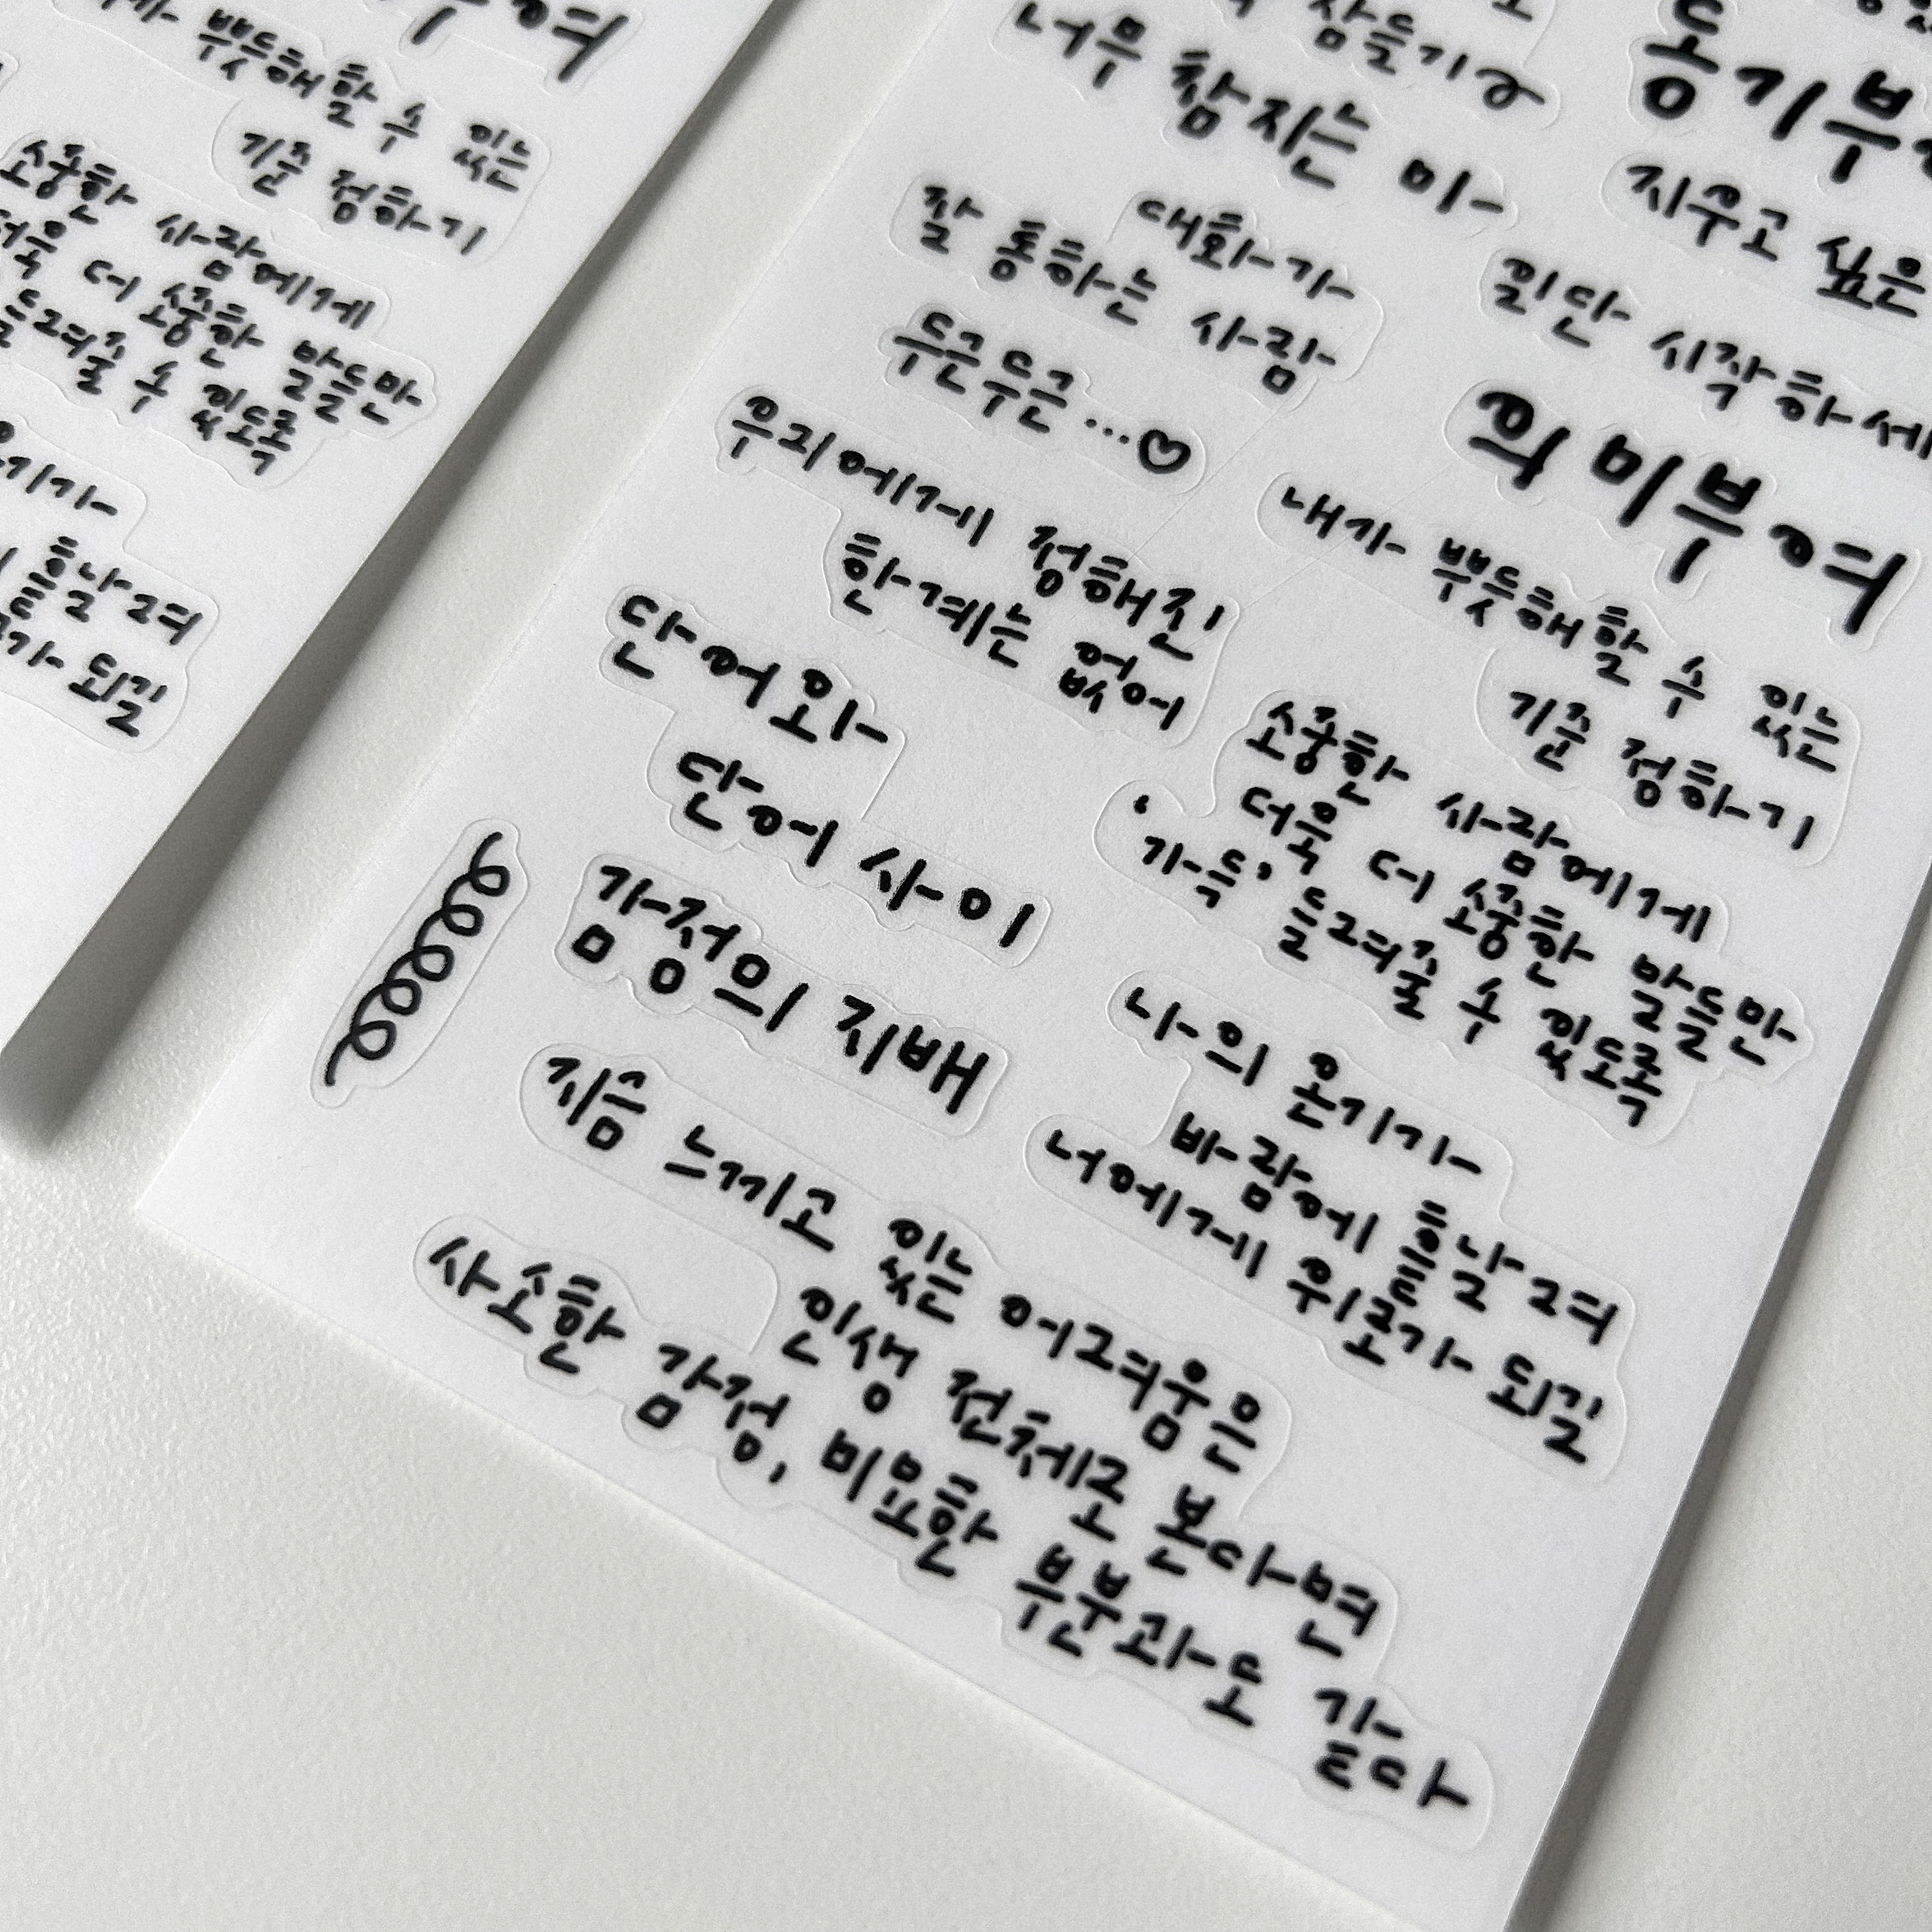 뿌듯해할 수 있는
기준 정하기
소중한 사람에게
더욱 더 소중한 말들만
들려줄 수 있도록
온기가
흩날려
되길
잠들기
너무 참지는 마
대화가
잘 통하는 사람
두근두근...♡
우리에게 정해진
한계는 없어
단어와
단어 사이
감정의 지배
지금 느끼고 있는 어려움은
인생 전체로 본다면
사소한 감정, 미묘한 부분과도 같다
용기부여
지우고 싶은
일단 시작하세
의미부여
내가 뿌듯해할 수 있는
기준 정하기
소중한 사람에게
더욱 더 소중한 말들만
'가득' 들려줄 수 있도록
나의 온기가
바람에 흩날려
너에게 위로가 되길